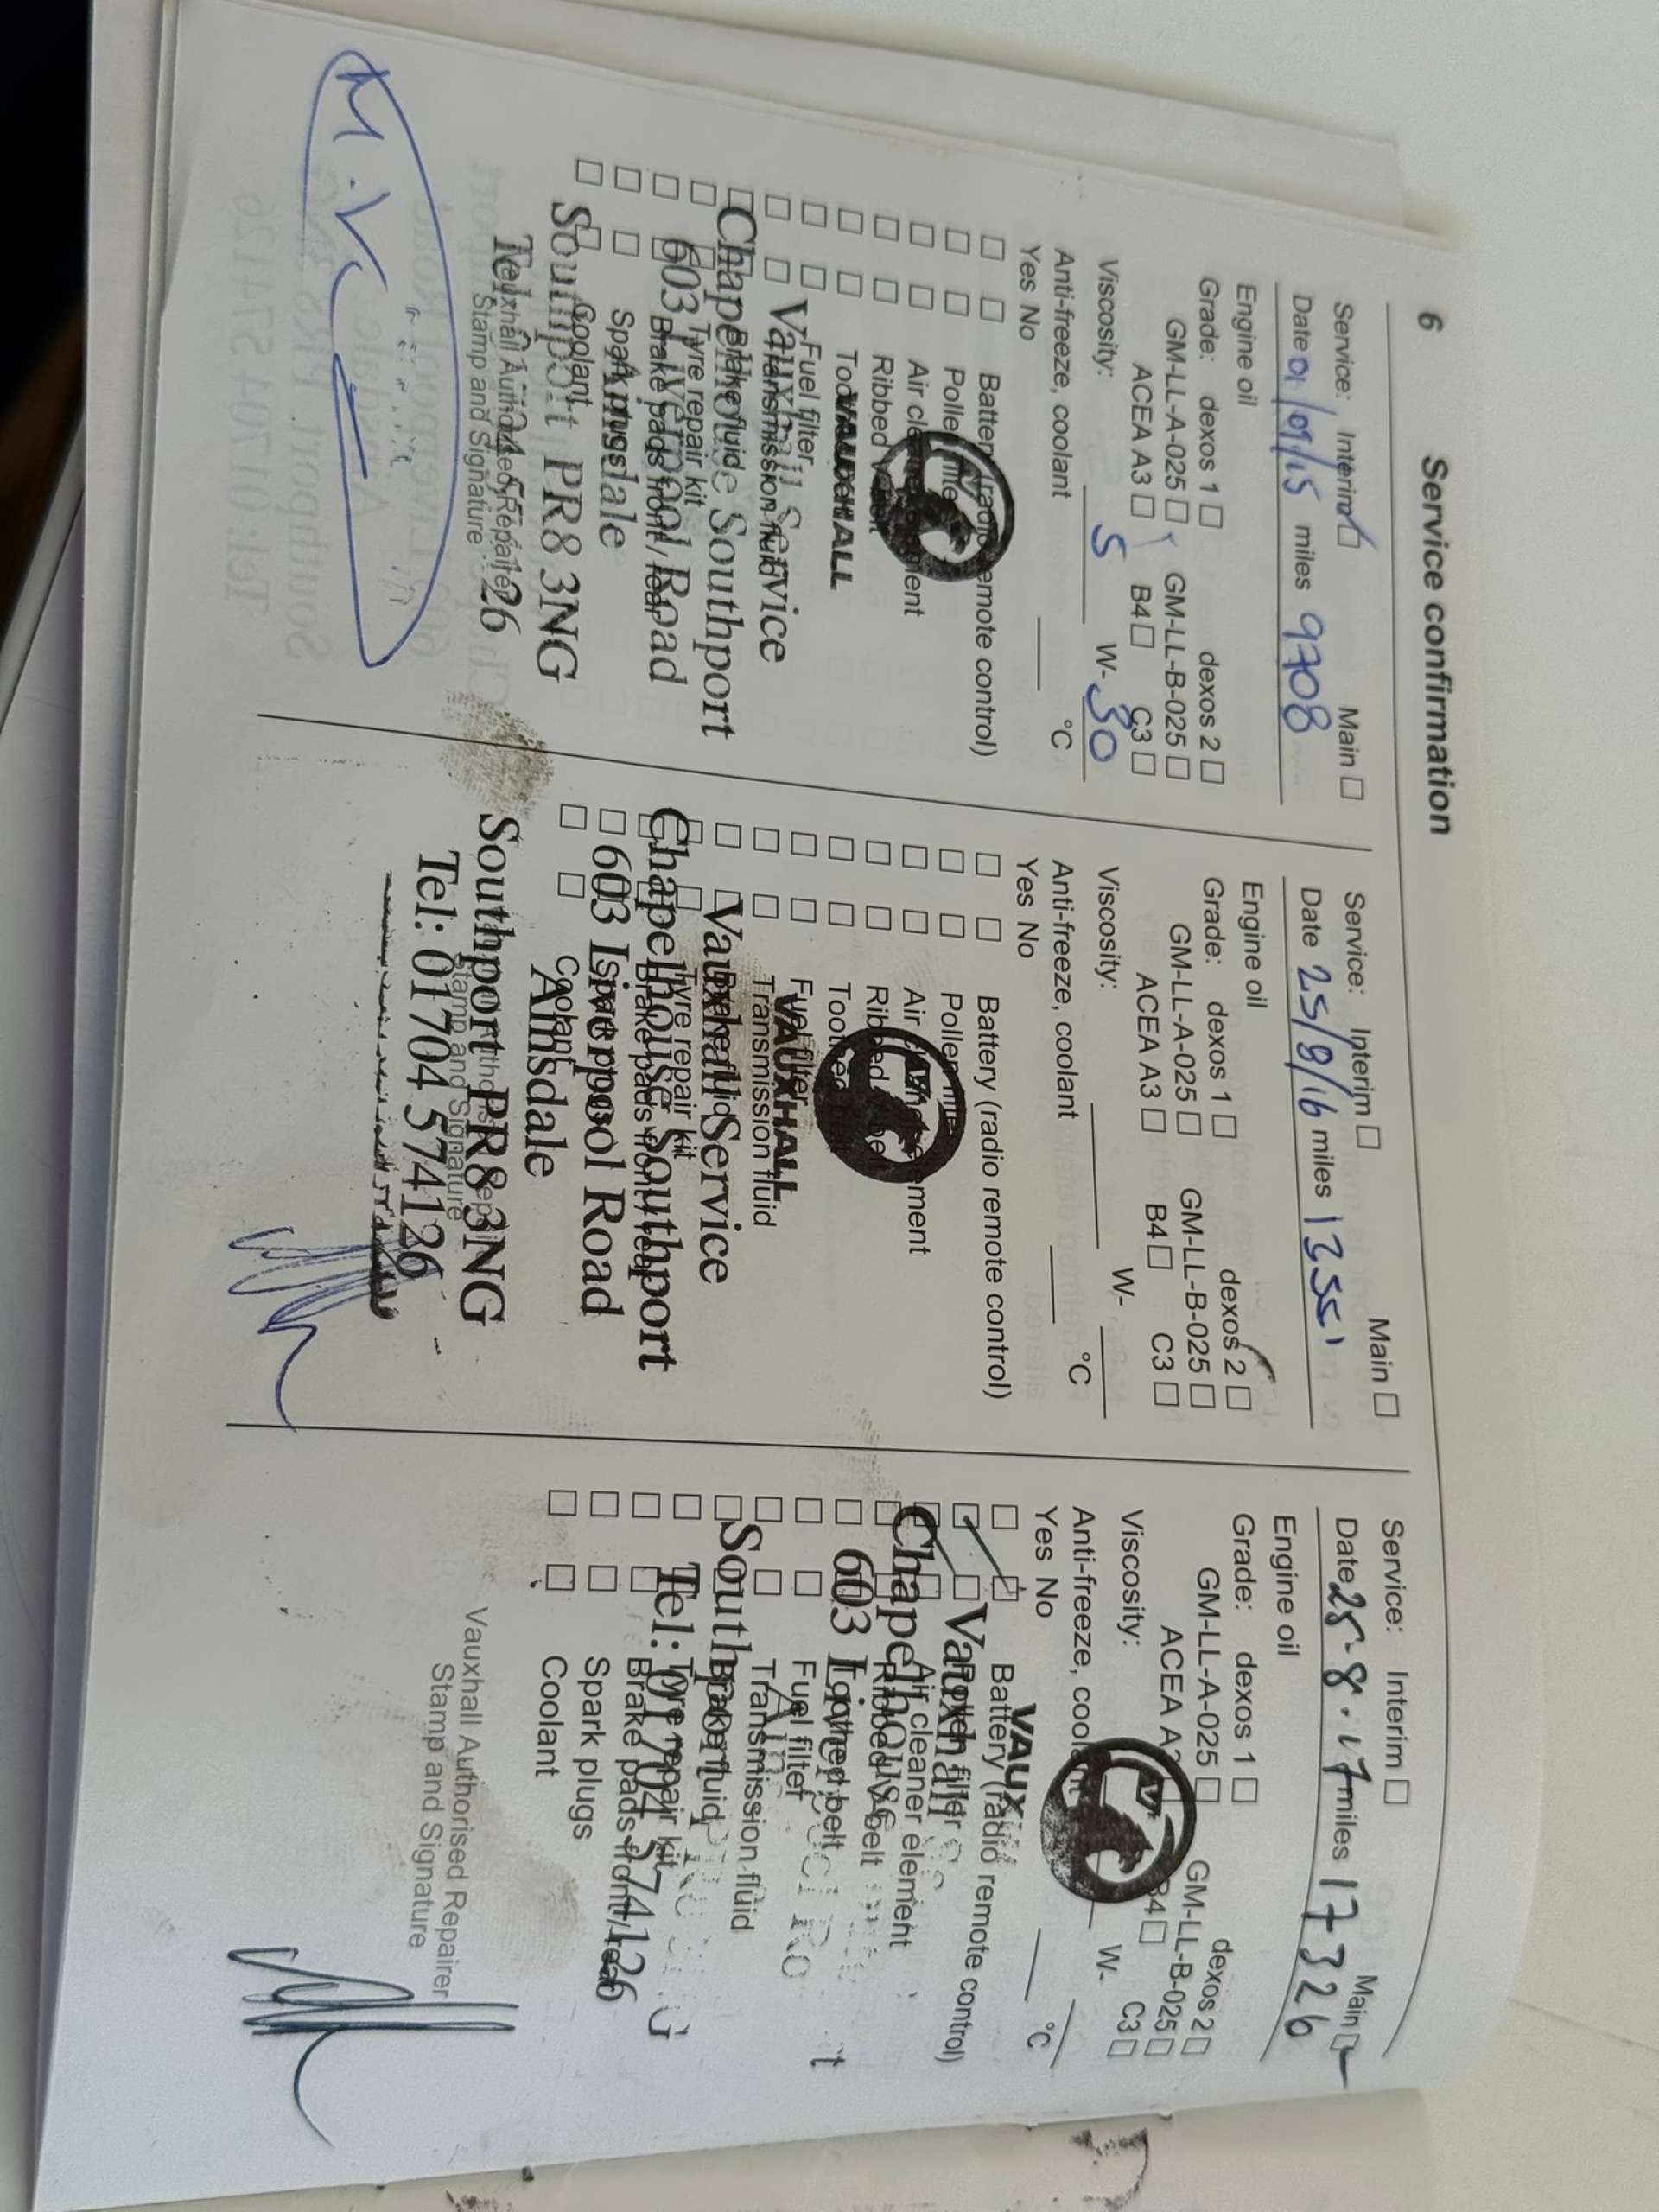 6 Service confirmation
Service: Interim □ Main □
Date 01/09/15 miles 9708
Engine oil
Grade: dexos 1 □ dexos 2 □
GM-LL-A-025 □ GM-LL-B-025 □
ACEA A3 □ B4 □ C3 □
Viscosity: 5 W-30
Anti-freeze, coolant °C
Yes No
□ □ Battery (radio remote control)
□ □ Pollen filter
□ □ Air cleaner element
□ □ Ribbed
□ □
VAUXHALL
□ □ Fuel filter
□ □ Transmission fluid
□ □ Brake fluid
□ □ Tyre repair kit
□ □ Brake pads front / rear
□ □ Spark plugs
□ □ Coolant
Vauxhall Service
Chapelhouse Southport
603 Liverpool Road
Ainsdale
Southport PR8 3NG
Vauxhall Authorised Repairer
Stamp and Signature
Service: Interim □ Main □
Date 25/8/16 miles 13551
Engine oil
Grade: dexos 1 □ dexos 2 □
GM-LL-A-025 □ GM-LL-B-025 □
ACEA A3 □ B4 □ C3 □
Viscosity: W-
Anti-freeze, coolant °C
Yes No
□ □ Battery (radio remote control)
□ □ Pollen filter
□ □ Air cleaner element
□ □ Ribbed
□ □ Toothed
□ □ Fuel filter
□ □ Transmission fluid
□ □
□ □ Tyre repair kit
□ □ Brake pads front / rear
□ □
□ □ Coolant
VAUXHALL
Vauxhall Service
Chapelhouse Southport
603 Liverpool Road
Ainsdale
Southport PR8 3NG
Tel: 01704 574126
Stamp and Signature
Service: Interim □ Main □
Date 25-8-17 miles 17326
Engine oil
Grade: dexos 1 □ dexos 2 □
GM-LL-A-025 □ GM-LL-B-025 □
ACEA A3 □ B4 □ C3 □
Viscosity: W-
Anti-freeze, coolant °C
Yes No
□ □ Battery (radio remote control)
□ □ Pollen filter
□ □ Air cleaner element
□ □ Ribbed V-belt
□ □ Toothed belt
□ □ Fuel filter
□ □ Transmission fluid
□ □ Brake fluid
□ □ Tyre repair kit
□ □ Brake pads front / rear
□ □ Spark plugs
□ □ Coolant
VAUX
Vauxhall
Chapelhouse
603 Liverpool Ro
Southport
Tel: 01704 574126
Vauxhall Authorised Repairer
Stamp and Signature